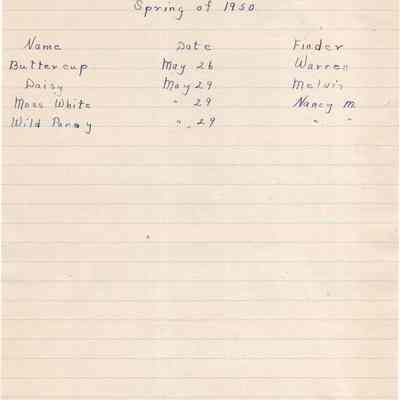 Spring of 1950.
Name Date Finder
Buttercup May 26 Warren
Daisy May 29 Melvin
Moss White " 29 Nancy M.
Wild Pansy " 29 " "